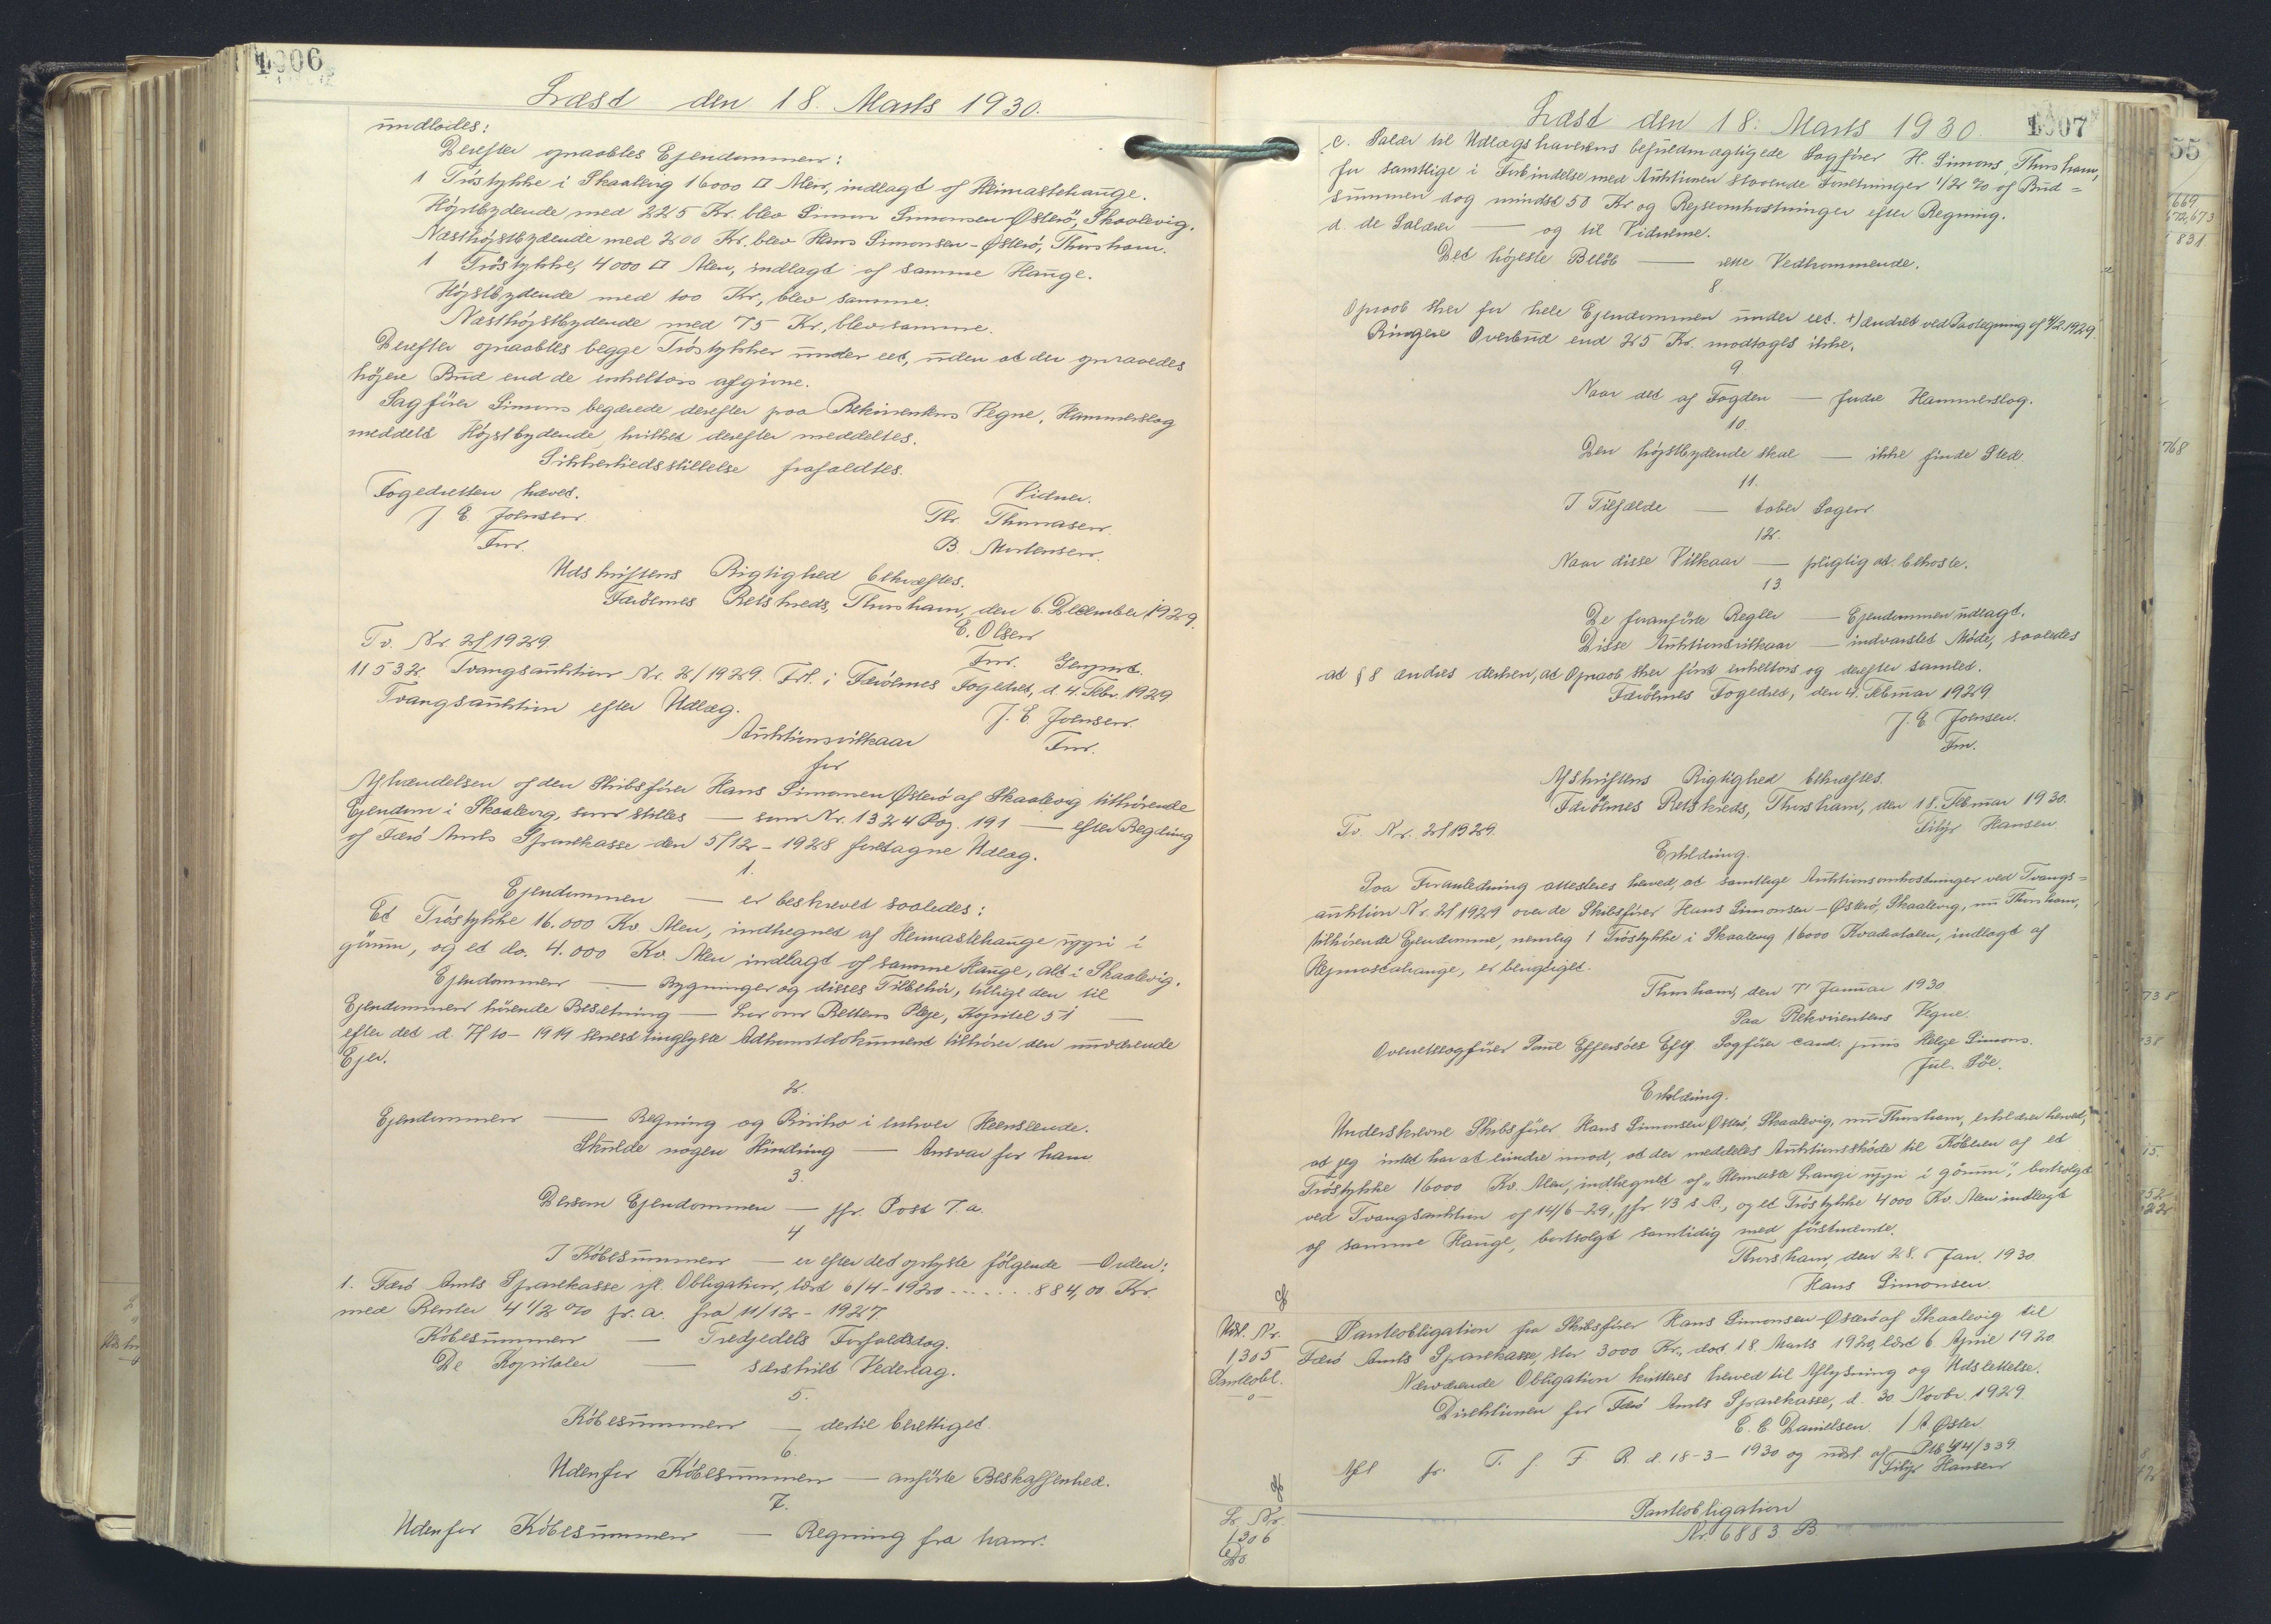 1906
Læst den 18. Marts 1930.
undlodes:
Derefter opraabtes Ejendommen:
1 Tröstykke i Skaalevig 16000 □ Alen, indlagt af Heimastehauge.
Höjstbydende med 225 Kr. blev Simon Simonsen-Österö, Skaalevig.
Næsthöjstbydende med 200 Kr. blev Hans Simonsen-Österö, Thorshavn.
1 Tröstykke, 4000 □ Alen, indlagt af samme Hauge.
Höjstbydende med 100 Kr., blev samme.
Næsthöjstbydende med 75 Kr., blev samme.
Derefter opraabtes begge Tröstykker under eet, uden at der opnaaedes
höjere Bud end de enkeltvis afgivne.
Sagförer Simons begærede derefter paa Rekvirentens Vegne, Hammerslag
meddelt Höjstbydende, hvilket derefter meddeltes.
Sikkerhedsstillelse frafaldtes.
Fogedretten hævet.
Vidner.
J E Joensen
Th. Thomasen.
Fm.
B. Mortensen.
Udskriftens Rigtighed bekræftes.
Færöernes Retskreds, Thorshavn, den 6. December 1929.
E. Olsen
Tv. Nr. 2/1929.
Fm. Gespont.
11532. Tvangsauktion Nr. 2/1929. Frl. i Færöernes Fogedret, d. 4. Febr. 1929
Tvangsauktion efter Udlæg.
J. E Joensen.
Auktionsvilkaar
Fm.
for
Afhændelsen af den Skibsförer Hans Simonsen Österö af Skaalevig tilhörende
Ejendom i Skaalevig, som stilles — som Nr. 1324 Pag. 191 — efter Begæring
af Færö Amts Sparekasse den 5/12-1928 foretagne Udlæg.
1.
Ejendommen — er beskrevet saaledes:
Et Tröstykke 16.000 Kv. Alen, indhegnet af Heimastehauge uppi i
gönum, og et do. 4.000 Kv. Alen indlagt af samme Hauge, alt i Skaalevig.
Ejendommen — Bygninger og disses Tilbehör, tillige den til
Ejendommen hörende Besætning — Lov om Rettens Pleje, Kapitel 51 —
efter det d. 7/10-1919 senest tinglyste Adkomstdokument tilhörer den nuværende
Ejer.
2.
Ejendommen — Regning og Risiko i enhver Henseende.
Skulde nogen Hindring — Ansvar for ham
3.
Dersom Ejendommen — jfr. Post 7.a.
4
I Köbesummen — er efter det oplyste fölgende — Orden:
1. Færö Amts Sparekasse ifl. Obligation, læst 6/4-1920 . . . . . . . 884,00 Kr.
med Renter 4 1/2 % p.a. fra 11/12-1927.
Köbesummen — Tredjedels Forfaldsdag.
De Kapitaler — særskilt Vederlag.
5.
Köbesummen — dertil berettiget.
6.
Udenfor Köbesummen — anförte Beskaffenhed.
7.
Udenfor Köbesummen — Regning fra ham.
Læst den 18. Marts 1930.
1907
c. Salær til Udlægshaverens befuldmægtigede Sagförer H. Simons, Thorshavn,
for samtlige i Forbindelse med Auktionen staaende Forretninger 1/2 % af Bud=
summen dog mindst 50 Kr og Rejseomkostninger efter Regning.
d. de Salærer — og til Vidnerne.
Det höjeste Belöb — rette Vedkommende.
8.
Opraab sker for hele Ejendommen under eet. +) ændret ved Paategning af 4/2 1929.
Ringere Overbud end 25 Kr. modtages ikke.
9.
Naar det af Fogden — fudre Hammerslag.
10
Den höjstbydende skal — ikke finde Sted.
11.
I Tilfælde — taber Sagen
12.
Naar disse Vilkaar — pligtig at bekoste.
13.
De foranförte Regler — Ejendommen udlagt.
Disse Auktionsvilkaar — indvarslet Möde, saaledes
at § 8 ændres derhen, at Opraab sker först enkeltvis og derefter samlet.
Færöernes Fogedret, den 4. Februar 1929
J. E Joensen.
Fm.
Afskriftens Rigtighed bekræftes.
Færöernes Retskreds, Thorshavn, den 18. Februar 1930.
Tv. Nr. 2/1929.
Filip Hansen
Erklæring.
Paa Foranledning attesteres herved, at samtlige Auktionsomkostninger ved Tvangs=
auktion Nr. 2/1929 over de Skibsförer Hans Simonsen-Österö, Skaalevig, nu Thorshavn,
tilhörende Ejendomme, nemlig 1 Tröstykke i Skaalevig 16000 Kvadratalen, indlagt af
Hejmastahauge, er berigtiget.
Thorshavn, den 7' Januar 1930
Paa Rekvirentens Vegne.
Overretssagförer Poul Effersöes Eftf. Sagförer cand. juris Helge Simons.
Jul. Söe.
Erklæring.
Underskrevne Skibsförer Hans Simonsen Österö, Skaalevig, nu Thorshavn, erklærer herved,
at jeg intet har at erindre imod, at der meddeles Auktionsskjöde til Köberen af et
Tröstykke 16000 Kv. Alen, indhegnet af „Heimaste Haugi uppi i gönum", bortsolgt
ved Tvangsauktion af 14/6-29, jfr. 43 s. A., og et Tröstykke 4000 Kv. Alen indlagt
af samme Hauge, bortsolgt samtidig med förstnævnte.
Thorshavn, den 28. Jan. 1930.
Hans Simonsen
Udsl. Nr.
1305
Panteobl.
Panteobligation fra Skibsförer Hans Simonsen-Österö af Skaalevig til
Færö Amts Sparekasse, stor 3000 Kr., dat. 18 Marts 1920, læst 6. April 1920.
Nærværende Obligation kvitteres herved til Aflysning og Udslettelse.
Direktionen for Færö Amts Sparekasse, d. 30. Novbr. 1929.
E. C Danielsen / A. Öster
Afl fr. T. f. F. R d. 18-3-1930 og udsl. af Ptb. 44/339.
Filip Hansen
Lr. Nr.
1306
Do.
Panteobligation
Nr. 6883 B.
55
669
672,673
831
768
738
38
15